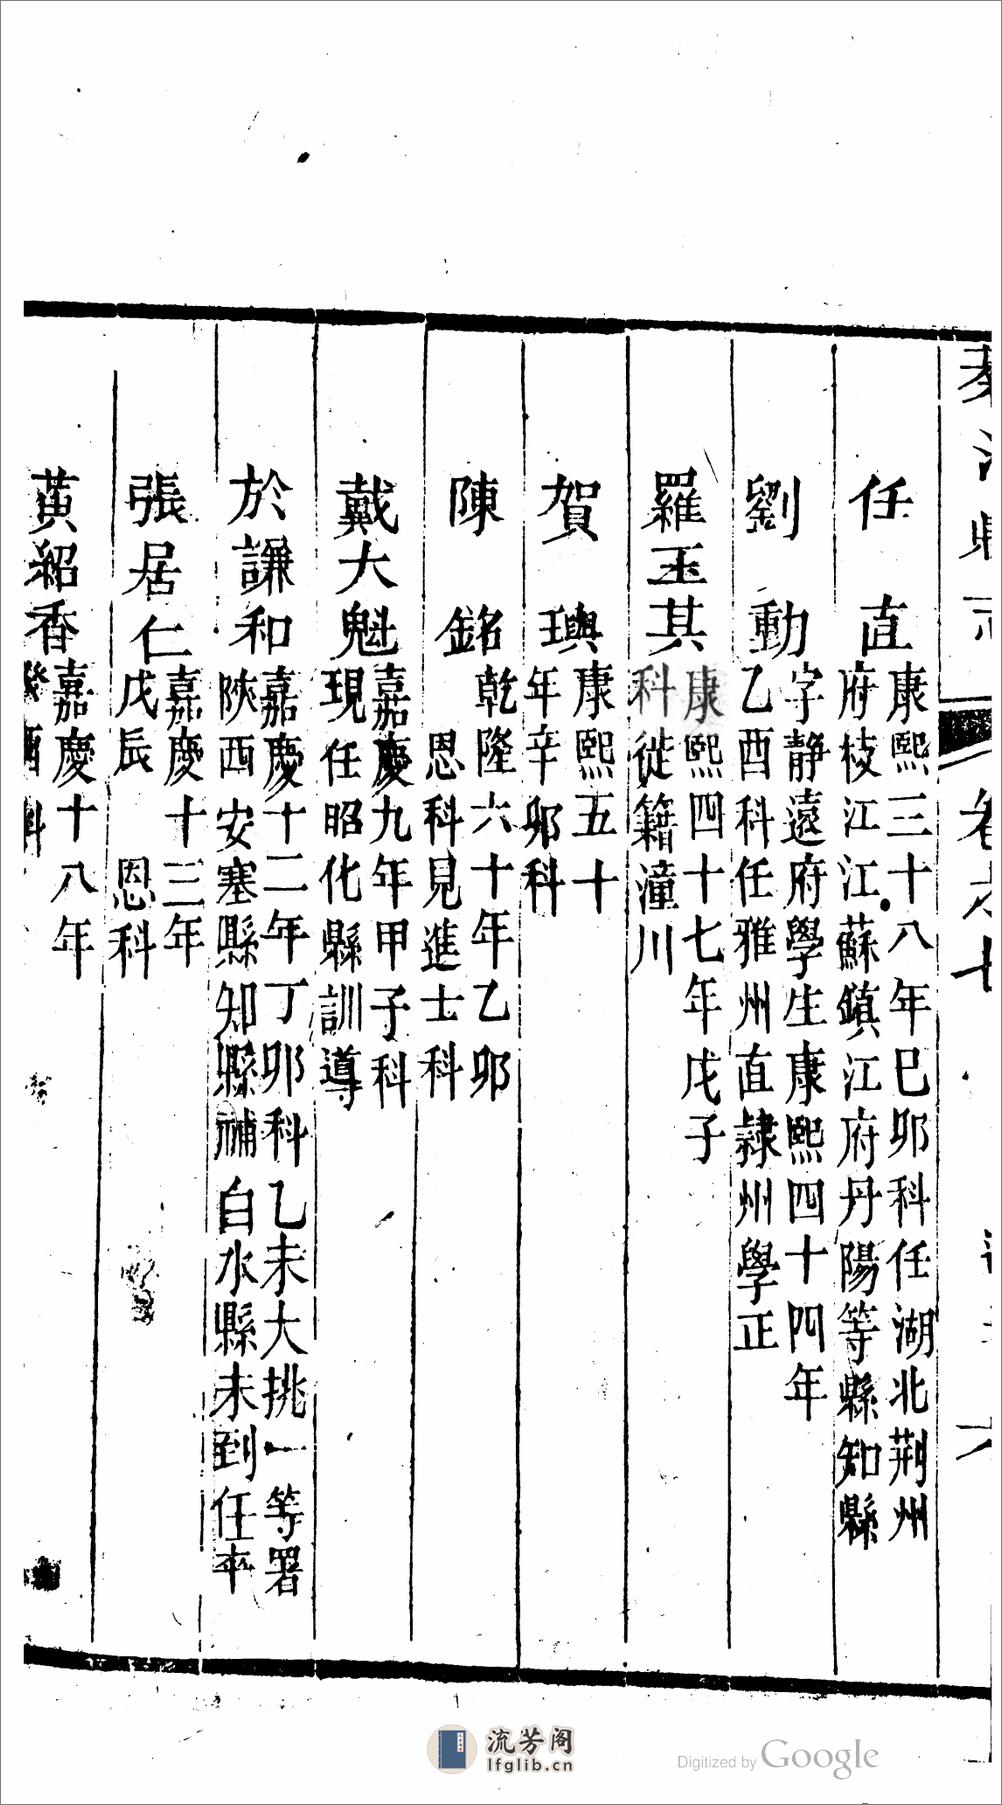 任直
康熙三十八年巳卯科任湖北荆州
府枝江江蘇鎮江府丹陽等縣知縣
劉動
字静遠府學生康熙四十四年
乙酉科任雅州直隸州學正
羅玉其
康熙四十七年戊子
科徙籍潼川
賀璵
康熙五十
年辛卯科
陳銘
乾隆六十年乙卯
恩科見進士科
戴大魁
嘉慶九年甲子科
現任昭化縣訓導
於謙和
嘉慶十二年丁卯科乙未大挑一等署
陝西安塞縣知縣補白水縣未到任卒
張居仁
嘉慶十三年
戊辰 恩科
黃紹香
嘉慶十八年
癸酉科
流芳阁
lfglib.cn
Digitized by Google